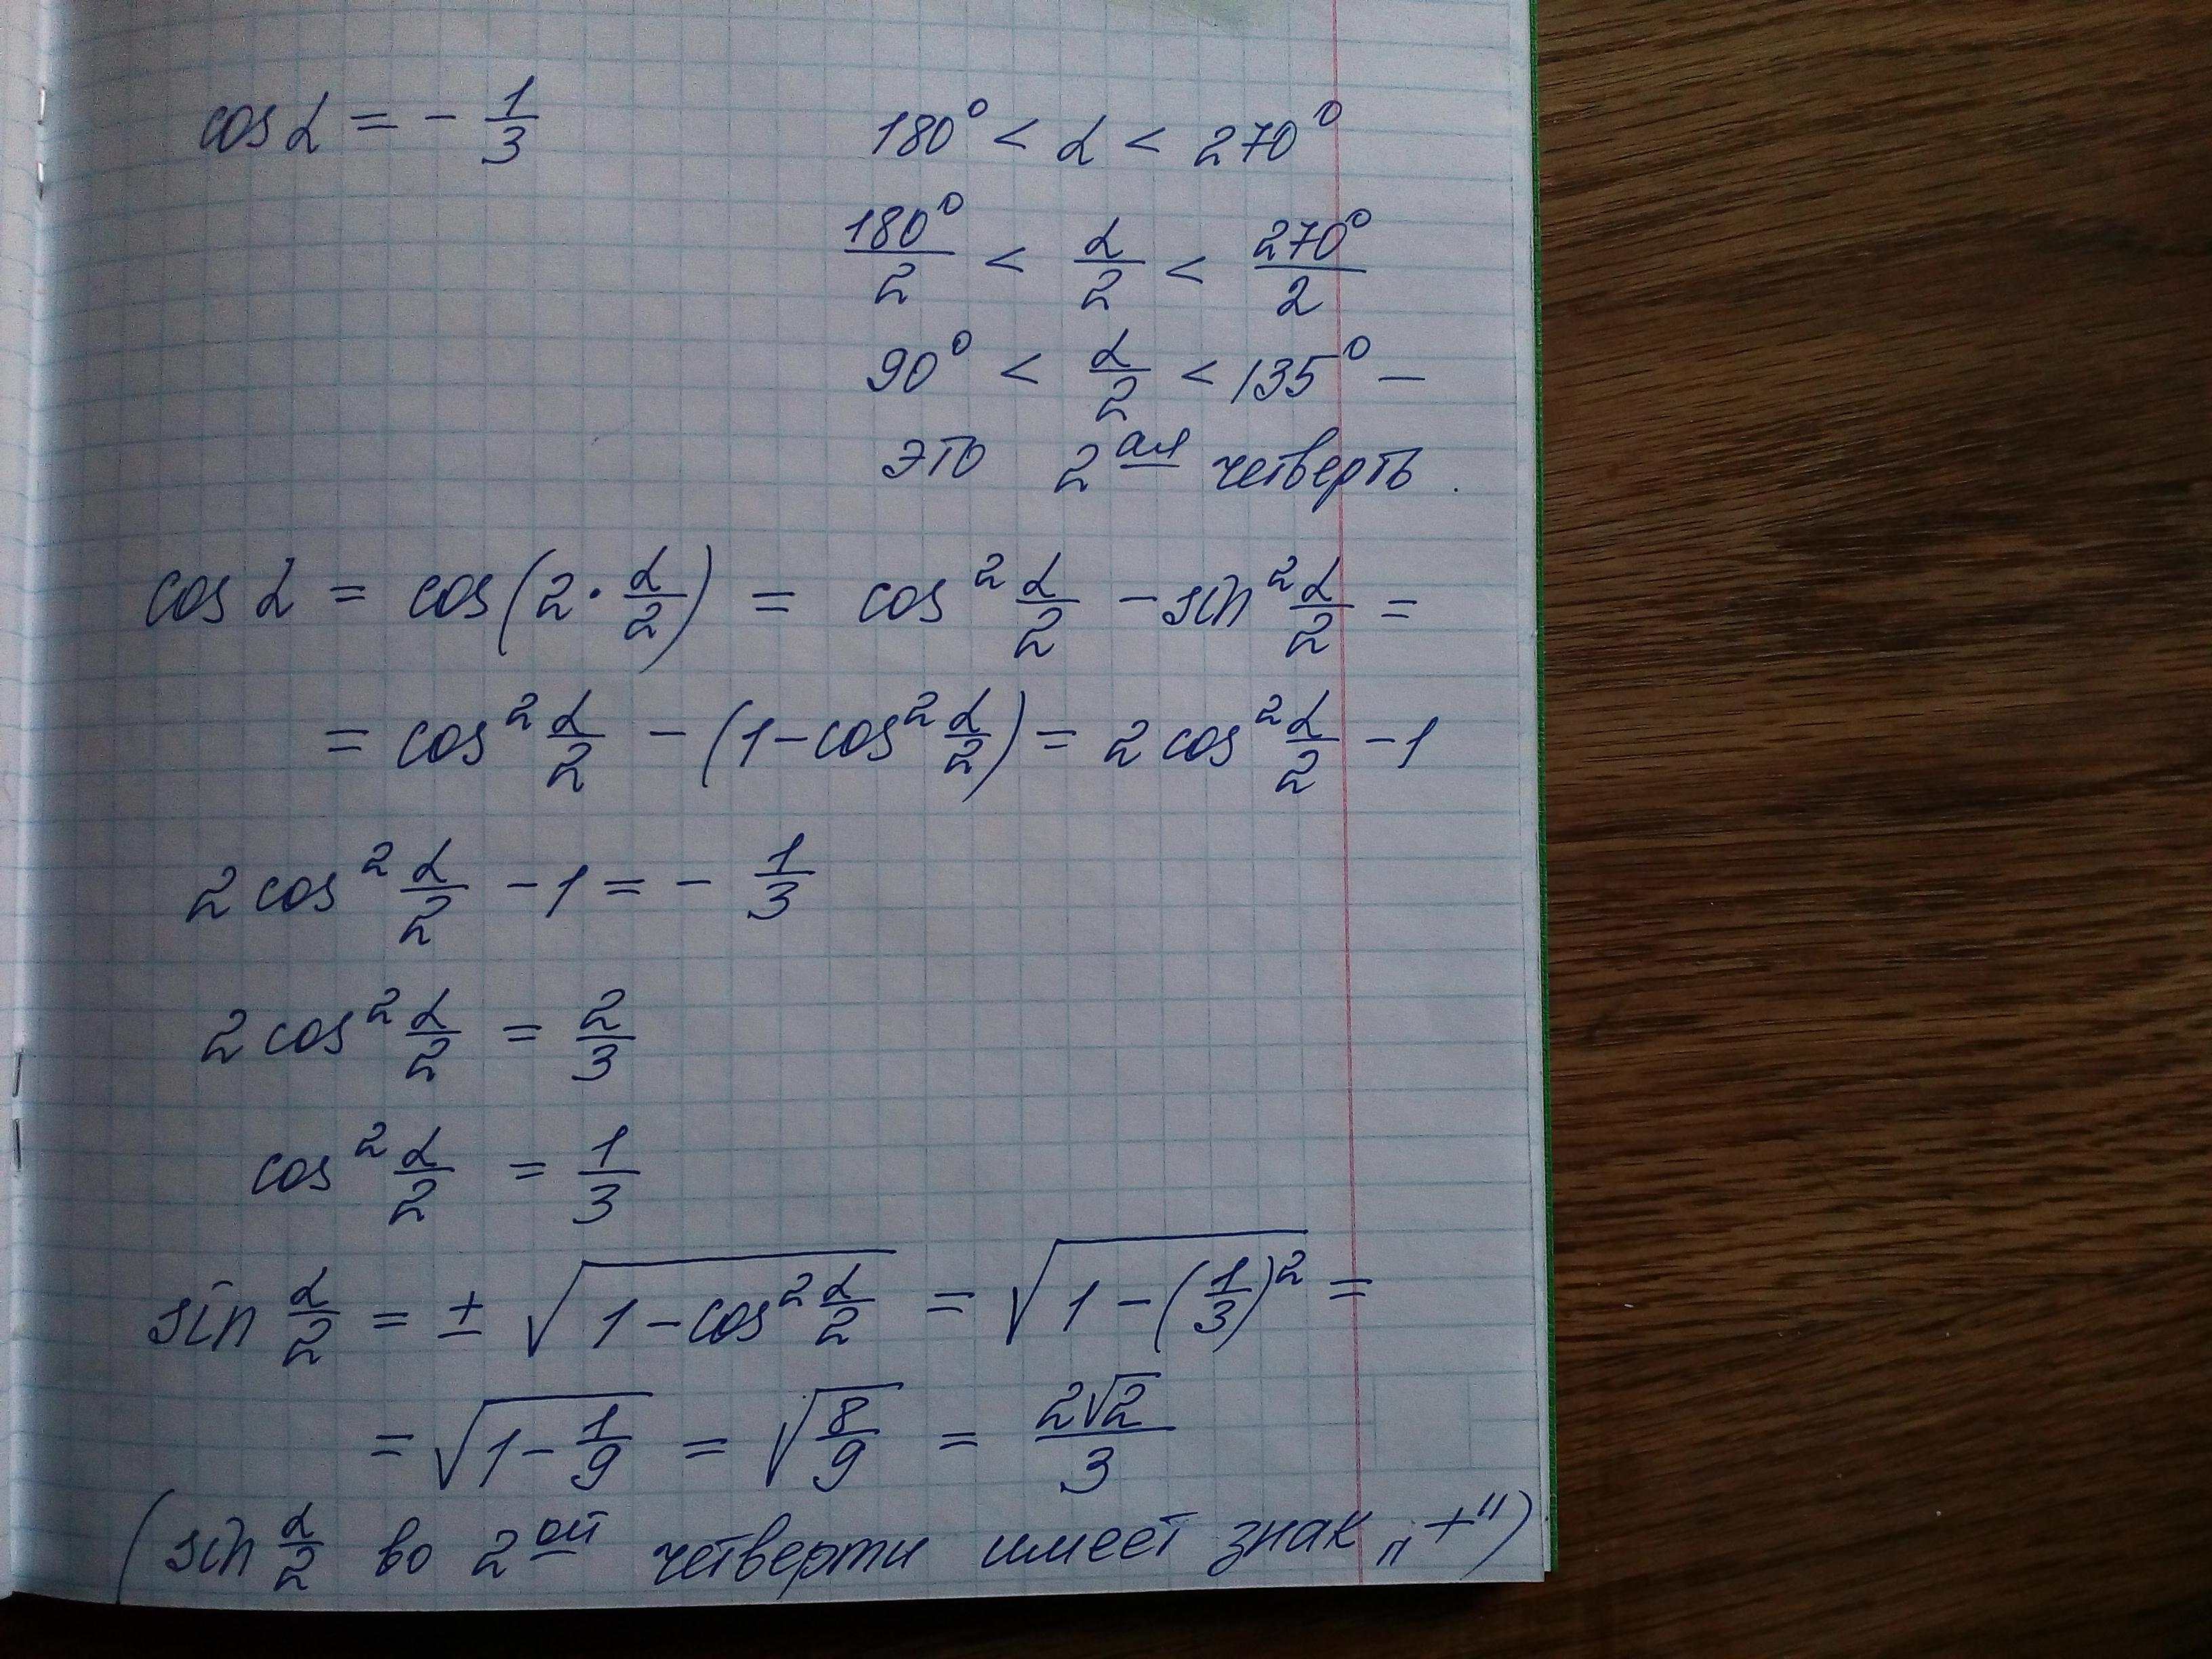 cos α = - 1/3     180° < α < 270°
180°/2 < α/2 < 270°/2
90° < α/2 < 135° —
это 2ая четверть.
cos α = cos(2·α/2) = cos² α/2 - sin² α/2 =
= cos² α/2 - (1 - cos² α/2) = 2 cos² α/2 - 1
2 cos² α/2 - 1 = - 1/3
2 cos² α/2 = 2/3
cos² α/2 = 1/3
sin α/2 = ± √(1 - cos² α/2) = √(1 - (1/3)²) =
= √(1 - 1/9) = √(8/9) = 2√2/3
(sin α/2 во 2ой четверти имеет знак „+")